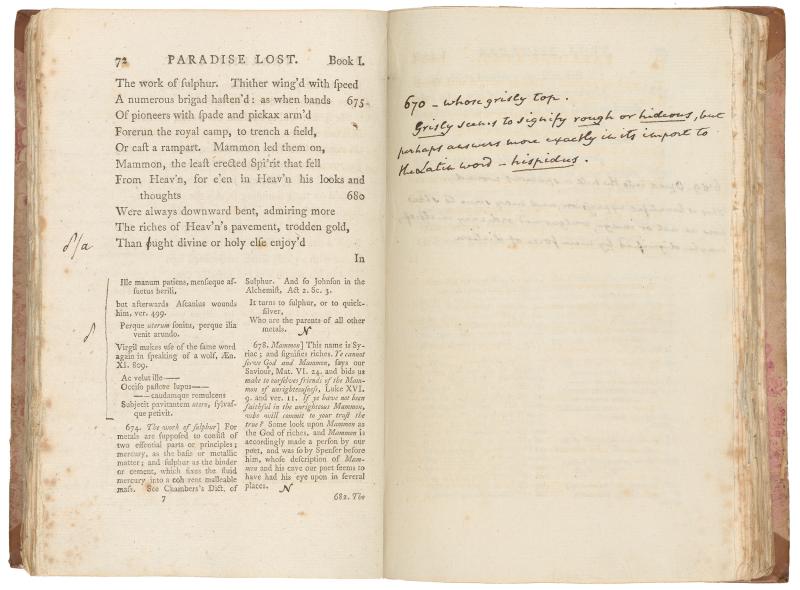 72 PARADISE LOST. Book I.
The work of ſulphur. Thither wing'd with ſpeed
A numerous brigad haſten'd: as when bands 675
Of pioneers with ſpade and pickax arm'd
Forerun the royal camp, to trench a field,
Or caſt a rampart. Mammon led them on,
Mammon, the leaſt erected Spi'rit that fell
From Heav'n, for e'en in Heav'n his looks and
thoughts 680
Were always downward bent, admiring more
The riches of Heav'n's pavement, trodden gold,
Than ought divine or holy elſe enjoy'd
In
Ille manum patiens, menſeque aſ-
ſuetus herili,
but afterwards Aſcanius wounds
him, ver. 499.
Perque uterum ſonitu, perque ilia
venit arundo.
Virgil makes uſe of the ſame word
again in ſpeaking of a wolf, Æn.
XI. 809.
Ac velut ille ——
Occiſo paſtore lupus——
——caudamque remulcens
Subjecit pavitantem utero, ſylvaſ-
que petivit.
674. The work of ſulphur] For
metals are ſuppoſed to conſiſt of
two eſſential parts or principles;
mercury, as the baſis or metallic
matter; and ſulphur as the binder
or cement, which fixes the fluid
mercury into a coh rent malleable
maſs. See Chambers's Dict. of
7
Sulphur. And ſo Johnſon in the
Alchemiſt, Act 2. Sc. 3.
It turns to ſulphur, or to quick-
ſilver,
Who are the parents of all other
metals. N
678. Mammon] This name is Sy-
riac; and ſignifies riches. Ye cannot
ſerve God and Mammon, ſays our
Saviour, Mat. VI. 24. and bids us
make to ourſelves friends of the Mam-
mon of unrighteouſneſs, Luke XVI.
9. and ver. 11. If ye have not been
faithful in the unrighteous Mammon,
who will commit to your truſt the
true? Some look upon Mammon as
the God of riches, and Mammon is
accordingly made a perſon by our
poet, and was ſo by Spenſer before
him, whoſe deſcription of Mam-
mon and his cave our poet ſeems to
have had his eye upon in ſeveral
places. N
682. The
670 – whose grisly top.
Grisly seems to signify rough or hideous, but
perhaps answers more exactly in its import to
the Latin word – hispidus.